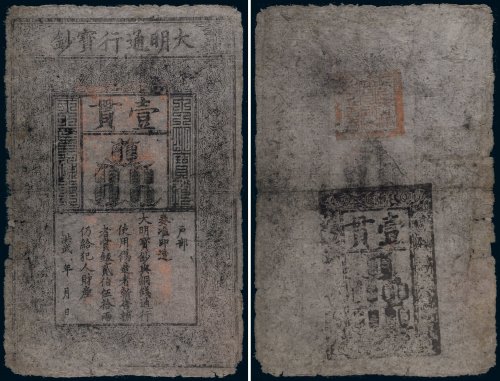 大明通行寶鈔
壹貫
戶部
奏准印造
大明寶鈔與銅錢通行
使用偽造者斬告捕
者賞銀貳伯伍拾兩
仍給犯人財產
洪武 年 月 日
壹貫